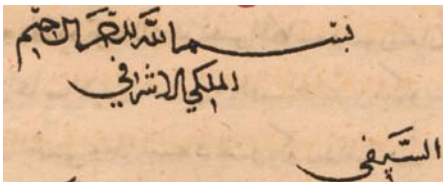 بسم الله الرحمن الرحيم
الملكي الاشرفي
السيفي